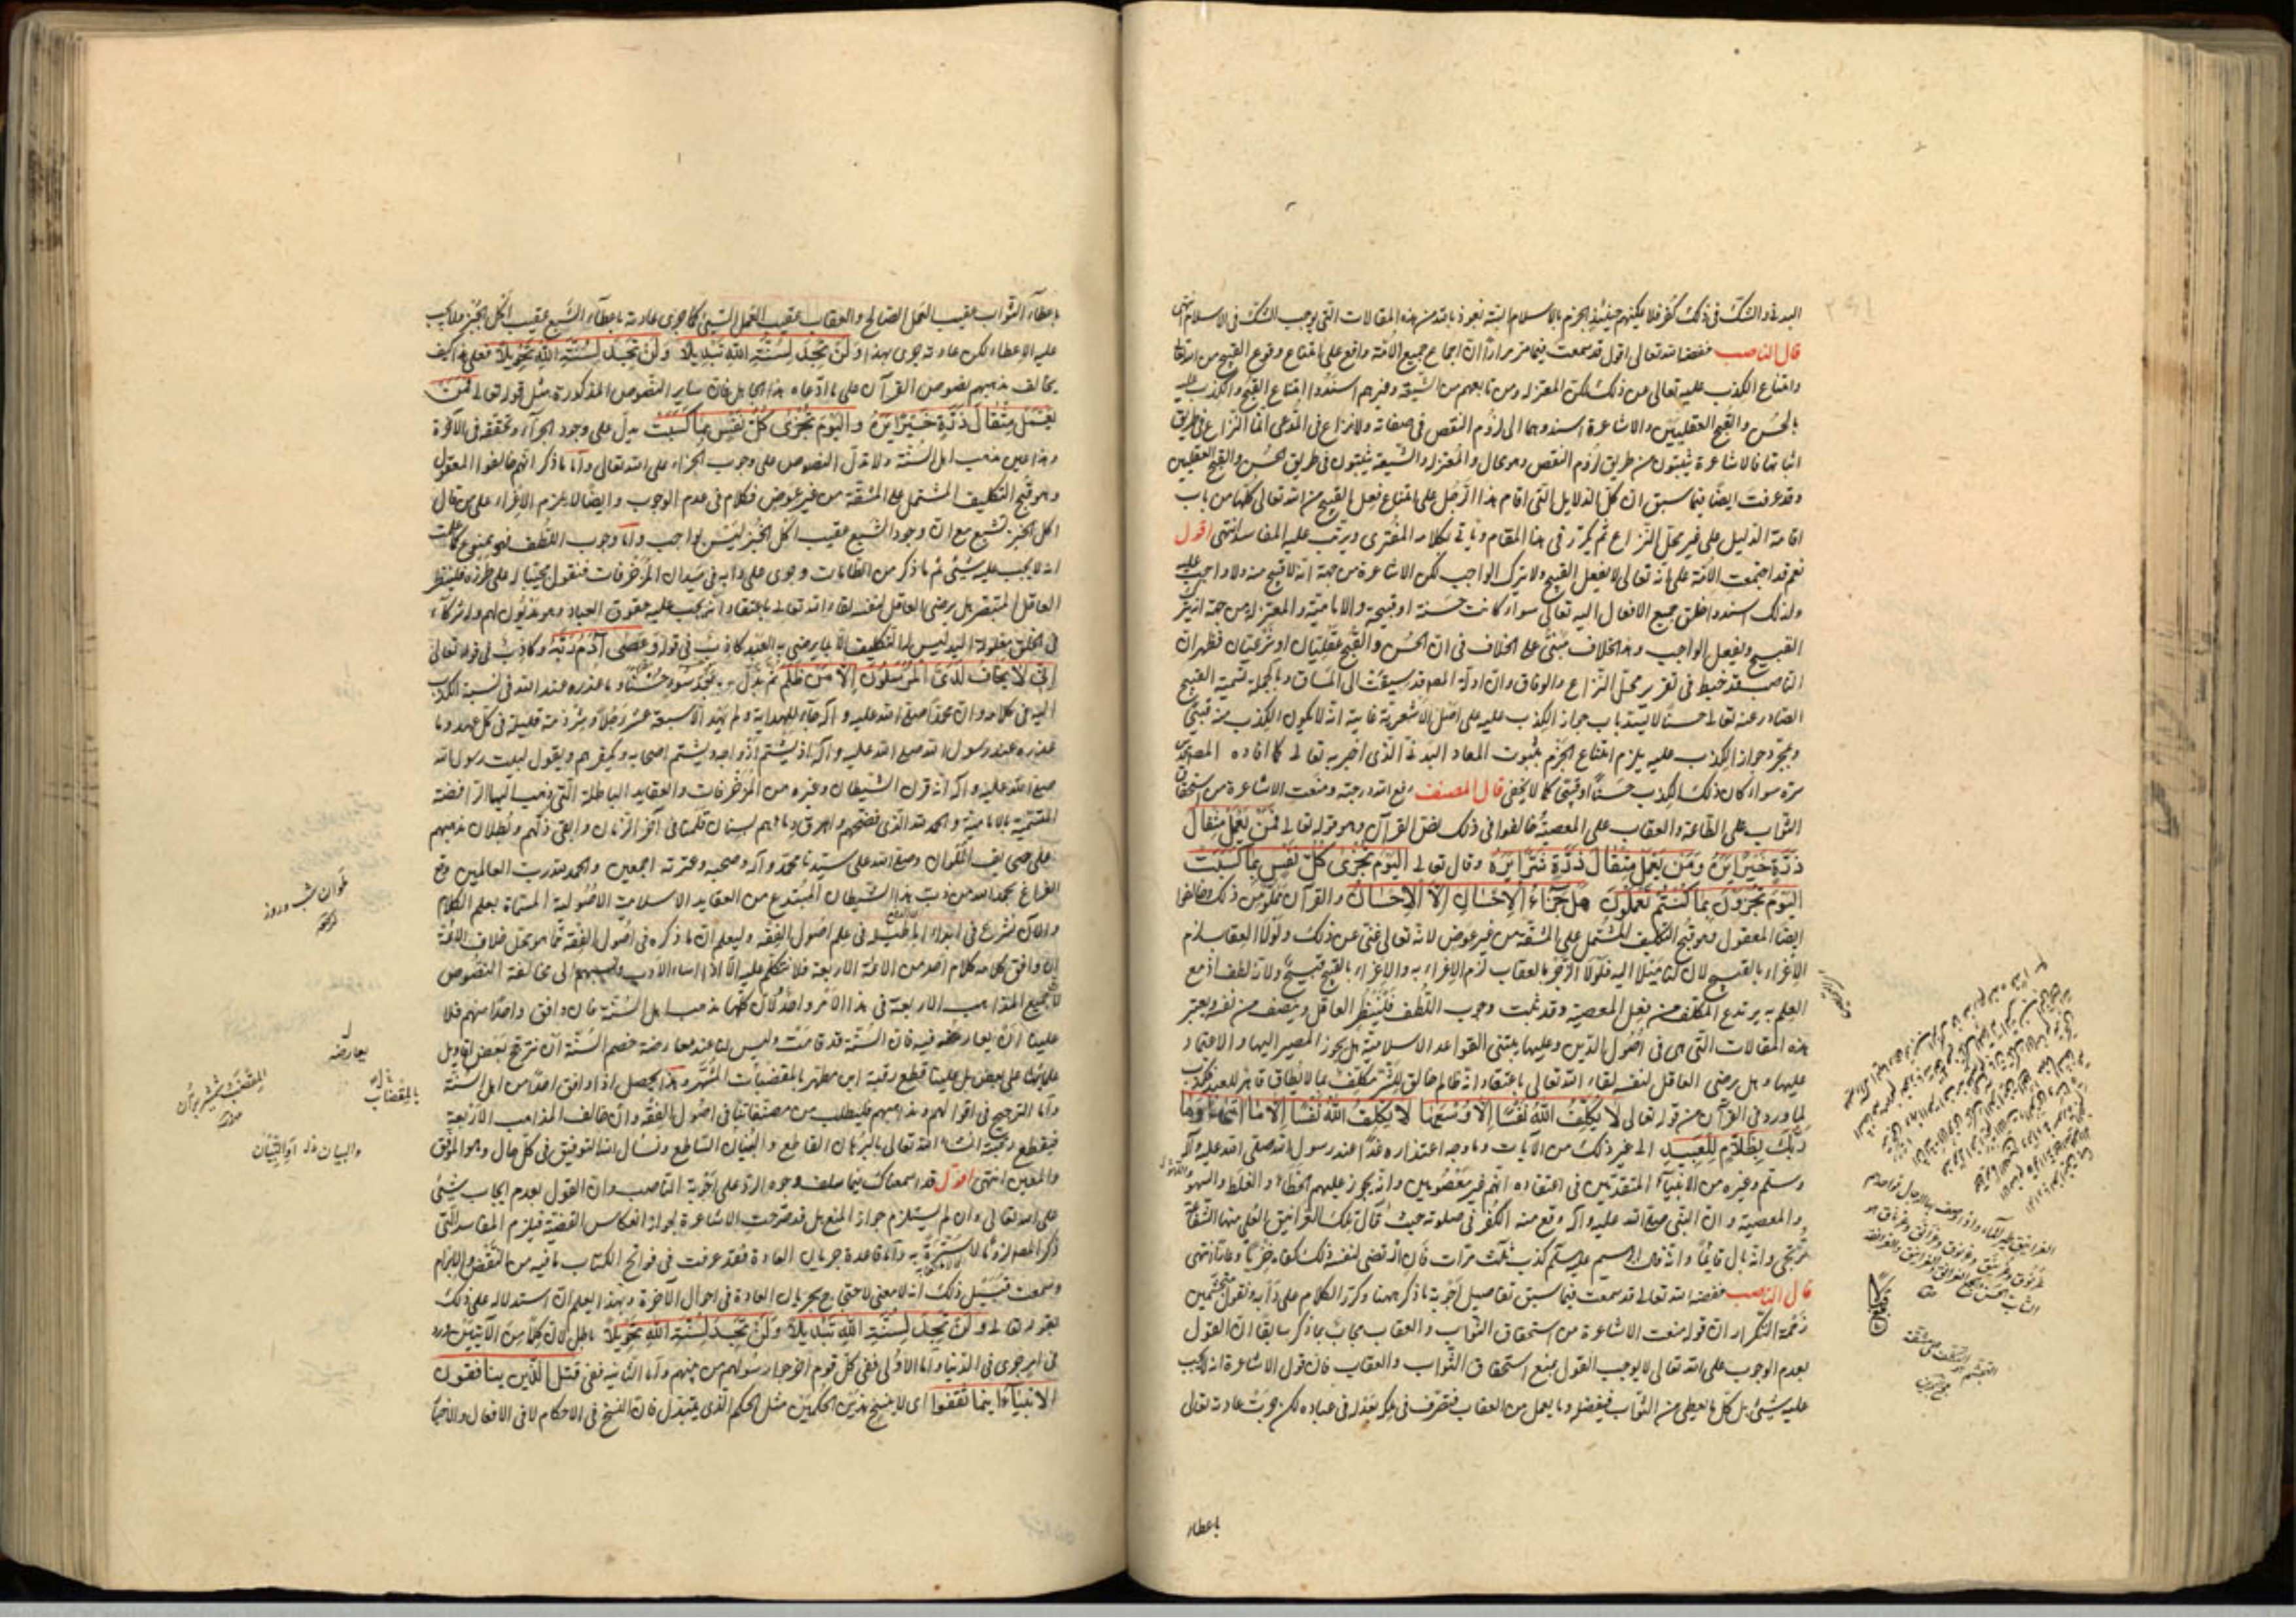 البدنى والشك فى ذلك كفر فلا يمكنهم حينئذ الجزم بالاسلام البتة نعوذ بالله من هذه المقالات التى يوجب الشك فى الاسلام انتهى
قال الناصب خفضه الله تعالى اقول قد سمعت فيما مر مرارا ان اجماع جميع الائمة واقع على امتناع وقوع القبيح من الله تعالى
وامتناع الكذب عليه تعالى عن ذلك لكن المعتزلة ومن تابعهم من الشيعة وغيرهم اسندوا امتناع القبح والكذب عليه
بالحسن والقبح العقليين والاشاعرة اسندوهما الى لزوم النقص فى صفاته ولا نزاع فى المدعى انما النزاع فى طريق
اثباتها فالاشاعرة يثبتون من طريق لزوم النقص وهو محال والمعتزلة والشيعة يثبتون فى طريق الحسن والقبح العقليين
وقد عرفت ايضا فيما سبق ان كل الدلايل التى اقام هذا الرجل على امتناع فعل القبيح من الله تعالى كلها من باب
اقامة الدليل على غير محل النزاع ثم يكرر فى هذا المقام ويأتى بكلامه المفترى ويرتب عليه المفاسد انتهى اقول
نعم قد اجتمعت الامة على انه تعالى لا يفعل القبيح ولا يترك الواجب لكن الاشاعرة من جهة انه لا قبيح منه ولا واجب عليه
ولذلك اسندوا خلق جميع الافعال اليه تعالى سواء كانت حسنة او قبيحة والامامية والمعتزلة من جهة انه يترك
القبيح ويفعل الواجب وهذا الخلاف مبنى على الخلاف فى ان الحسن والقبح عقليان او شرعيان فظهر ان
الناصب قد خبط فى تقرير محل النزاع والوفاق وان ادلة المصنف قد سيقت الى المساق وبالجملة تسمية القبيح
الصادر عنه تعالى حسنا لا يسد باب جواز الكذب عليه على اصل الاشعرية غايته انه لا يكون الكذب منه قبيحا
وبمجرد جواز الكذب عليه يلزم امتناع الجزم بثبوت المعاد البدنى الذى اخبر به تعالى كما افاده المصنف قدس
سره سواء كان ذلك الكذب حسنا او قبيحا كما لا يخفى قال المصنف رفع الله درجته ومنعت الاشاعرة من استحقاق
الثواب على الطاعة والعقاب على المعصية فخالفوا فى ذلك نص القرآن وهو قوله تعالى فمن يعمل مثقال
ذرة خيرا يره ومن يعمل مثقال ذرة شرا يره وقال تعالى اليوم تجزى كل نفس بما كسبت
اليوم تجزون بما كنتم تعملون هل جزاء الاحسان الا الاحسان والقرآن مملو من ذلك وخالفوا
ايضا المعقول وهو قبح التكليف المشتمل على المشقة من غير عوض لانه تعالى غنى عن ذلك ولولا العقاب لزم
الاغراء بالقبيح لان لنا ميلا اليه فلولا الزجر بالعقاب لزم الاغراء به والاغراء بالقبيح قبيح ولانه لطف اذ مع
العلم به يرتدع المكلف من فعل المعصية وقد ثبت وجوب اللطف فلينظر العاقل وينصف من نفسه ويعتبر
هذه المقالات التى هى فى اصول الدين وعليها يبتنى القواعد الاسلامية هل يجوز المصير اليها والاعتماد
عليها وهل يرضى العاقل لنفسه لقاء الله تعالى باعتقاد انه ظالم خالق للشر مكلف بما لا يطاق قاهر للعبد مكذب
لما ورد فى القرآن من قوله تعالى لا يكلف الله نفسا الا وسعها لا يكلف الله نفسا الا ما اتيها وما
ربك بظلام للعبيد الى غير ذلك من الآيات وما وجه اعتذاره غدا عند رسول الله صلى الله عليه وآله
وسلم وغيره من الانبياء المتقدمين فى اعتقاده انهم غير معصومين وانه يجوز عليهم الخطاء والغلط والسهو
والمعصية وان النبى صلى الله عليه وآله وقع منه الكفر فى صلوته حيث قال تلك الغرانيق العلى منها الشفاعة
ترتجى وانه بال قائما وانه قال ابراهيم عليه سلم كذب ثلث مرات فان ارتضى لنفسه ذلك كفاه خزيا وعارا انتهى
قال الناصب خفضه الله تعالى قد سمعت فيما سبق تفاصيل اجوبة ما ذكر ههنا وكرر الكلام على دأبه ونقول متجشمين
زحمة التكرار ان قوله منعت الاشاعرة من استحقاق الثواب والعقاب يجاب بما ذكر سابقا ان القول
بعدم الوجوب على الله تعالى لا يوجب القول بمنع استحقاق الثواب والعقاب فان قول الاشاعرة انه لا يجب
عليه شيئ بل كل ما يعطى من الثواب فبفضله وما يعمل من العقاب فتصرف فى ملكه بعدله فى عباده لكن جرت عادته تعالى
باعطاء
باعطاء الثواب عقيب العمل الصالح والعقاب عقيب العمل السيئ كما جرى عادته باعطاء الشبع عقيب اكل الخبز فلا يجب
عليه الاعطاء لكن عادته جرى بهذا ولن تجد لسنة الله تبديلا ولن تجد لسنة الله تحويلا فعلى هذا كيف
يخالف مذهبهم نصوص القرآن على ما ادعاه هذا الجاهل فان ساير النصوص المذكورة مثل قوله تعالى فمن
يعمل مثقال ذرة خيرا يره واليوم تجزى كل نفس بما كسبت يدل على وجود الجزاء وتحققه فى الآخرة
وهذا عين مذهب اهل السنة ولا تدل النصوص على وجوب الجزاء على الله تعالى واما ما ذكر انهم خالفوا المعقول
وهو قبح التكليف المشتمل على المشقة من غير عوض فكلام فى عدم الوجوب وايضا لا يلزم الاغراء على من قال
اكل الخبز تشبع مع ان وجود الشبع عقيب اكل الخبز ليس بواجب واما وجوب اللطف فهو ممنوع كما علمت
انه لا يجب عليه شيئ ثم ما ذكر من الطامات وجرى على دأبه فى ميدان المزخرفات فنقول مجيبا له على طرزه فلينظر
العاقل المتبصر هل يرضى العاقل لنفسه لقاء الله تعالى باعتقاد انه يجب عليه حقوق العباد وهو مديون لهم وله شركاء
فى الخلق مغلولة اليد ليس له التكليف الا بما يرضى به العبد كاذب فى قوله وعصى آدم ربه وكاذب فى قوله تعالى
انى لا يخاف لدى المرسلون الا من ظلم ثم بدل حسنا بعد سوء وما عذره عند الله فى نسبة الكذب
اليه فى كلامه وان محمدا صلى الله عليه وآله جاء للهداية ولم يهد الا سبعة عشر رجلا وشرذمة قليلة فى كل عهد وما
عذره عند رسول الله صلى الله عليه وآله اذ يشتم ازواجه ويشتم اصحابه ويكفرهم ويقول لبيت رسول الله
صلى الله عليه وآله انه قرن الشيطان وغيره من المزخرفات والعقايد الباطلة التى ذهب اليها الرافضة
المتسمية بالامامية والحمد لله الذى فضحهم واهرق دمائهم بسنان قلمنا فى آخر الزمان وابقى ذلهم وبطلان مذهبهم
على صحايف الاكوان وصلى الله على سيدنا محمد وآله وصحبه وعترته اجمعين والحمد لله رب العالمين وقع
الفراغ بحمد الله من ذب هذا الشيطان المبتدع من العقايد الاسلامية الاصولية المسماة بعلم الكلام
والآن نشرع فى ابداء اباطيله فى علم اصول الفقه وليعلم ان ما ذكره فى اصول الفقه مما هو محل خلاف الائمة
ان وافق كلامه كلام احد من الائمة الاربعة فلا نتكلم عليه الا اذا اساء الادب ونسبهم الى مخالفة النصوص
لان جميع المذاهب الاربعة فى هذا الامر واحد لان كلها مذهب اهل السنة فان وافق واحدا منهم فلا
علينا ان يعارضه فيه فان السنة قد قامت وليس لنا عند معارضة خصم السنة ان نرجح بعض اقاويل
علمائنا على بعض بل علينا قطع رقبة ابن مطهر بالمقضبات المشهرة وهذا يحصل اذا وافق احدا من اهل السنة
واما الترجيح فى اقوالهم ومذاهبهم فليطلب من مصنفاتنا فى اصول الفقه وان خالف المذاهب الاربعة
فيقطع رقبته انشاء الله تعالى بالبرهان القاطع والبنيان الساطع ونسأل الله التوفيق فى كل حال وهو الموفق
والمعين انتهى اقول قد اسمعناك فيما سلف وجوه الرد على اجوبة الناصب وان القول بعدم ايجاب شيئ
على الله تعالى وان لم يستلزم جواز المنع بل قد صرحت الاشاعرة بجواز انعكاس القضية فيلزم المفاسد التى
ذكرها المصنف لزوما لا سترة به واما قاعدة جريان العادة فقد عرفت فى فواتح الكتاب ما فيه من النقض والابرام
وسمعت قبيل ذلك انه لا معنى لاحتجاج بجريان العادة فى احوال الآخرة وبهذا يعلم ان استدلاله على ذلك
بقوله تعالى ولن تجد لسنة الله تبديلا ولن تجد لسنة الله تحويلا باطل لان كلا من الآيتين ورد
فى امر جرى فى الدنيا اما الاولى ففى كل قوم اخرجوا رسولهم من بينهم واما الثانية ففى قتل الذين ينافقون
الانبياء اينما ثقفوا اى لا ينسخ هذين الحكمين مثل الحكم الذى يتبدل فان النسخ فى الاحكام لا فى الافعال والاخبار